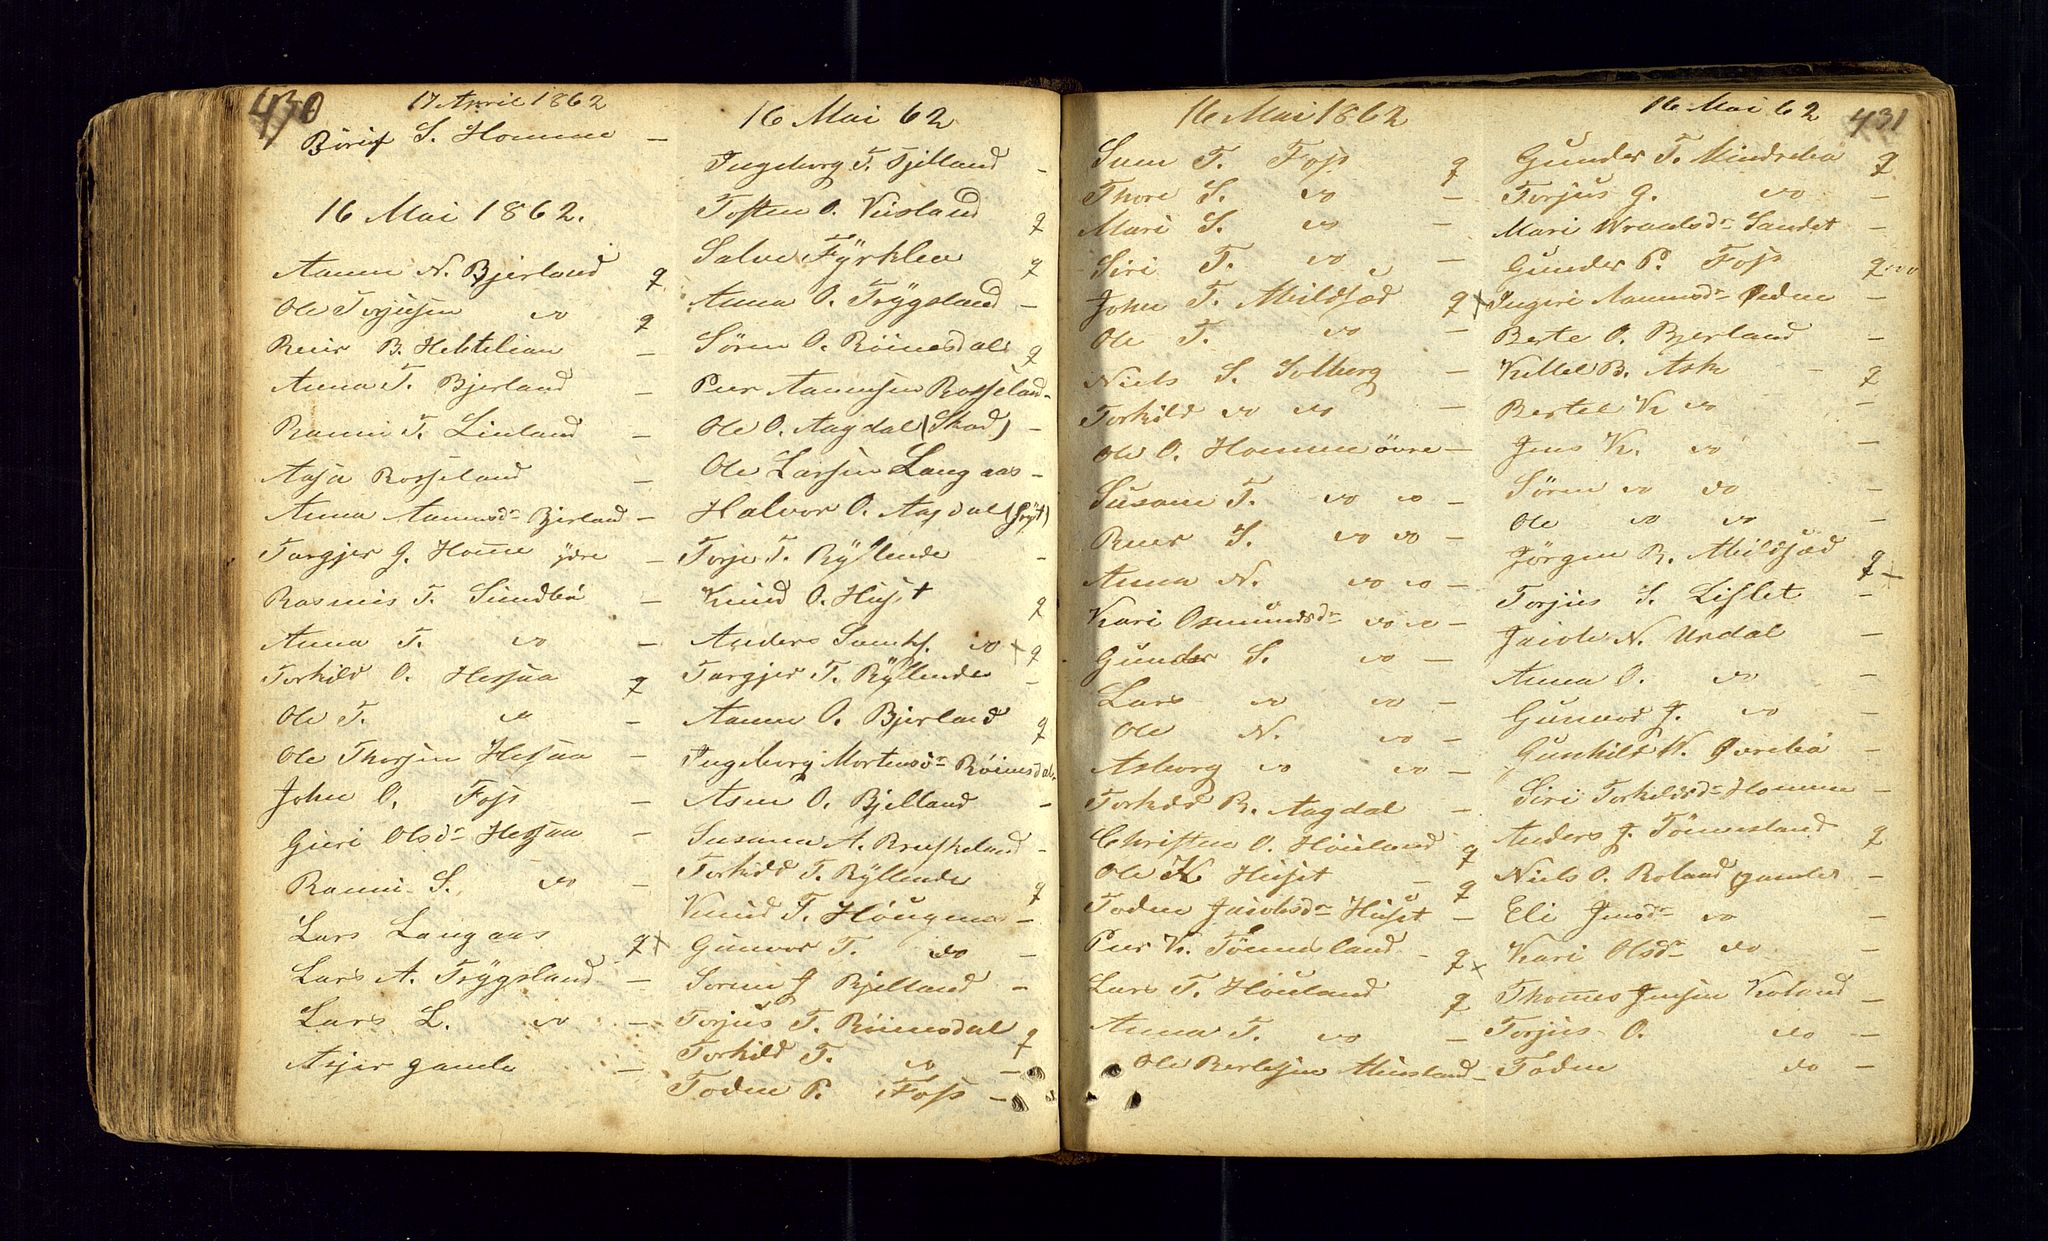 430
17 April 1862
S. Homme —
16 Mai 1862.
Aanen N. Bjerland q
Ole Torjusen do q
Reier B. —
Anna T. Bjerland —
Rannei T. Linland —
Aasa Rosseland —
Anna Aanensdr Bjerland —
Targjer G. Home ydre —
Rasmis T. Sundbö —
Anna T. do —
Torkild O. Hessaa q
Ole T. do —
Ole Thorsen Hessaa —
John O. Foss —
Guri Olsdr Hessaa —
Rannei S. do —
Lars Langaas q x
Lars A. Trygsland —
Lars L. do —
Asjer gamle —
16 Mai 62
Ingeborg T. Fjelland —
Tosten O. Veisland q
Salve Fyrklev q
Anna O. Trygsland —
Sören O. Röinesdal q
Peer Aanensen Rosseland —
Ole O. Aagdal (Skod) —
Ole Larsen Langaas —
Halvor O. Aagdal
Torje T. Ryllende —
Knud O. Huset q
Anders do x q
Targjer T. Ryllende —
Aanen O. Bjerland q
Ingeborg Mortensdr Röinesdal —
Asen O. Bjelland —
Susana A. Bruskeland —
Torkild T. Ryllende q
Knud T. Hougenes —
Gunvor T. do —
Soren J Bjelland —
Torjus T. Röinesdal q
Torkild T. do —
Toden P. Foss —
16 Mai 1862
T. Foss q
Thore S. do —
Mari S. do —
Siri T. do —
John T. Mildsæd q x
Ole T. do —
Niels S. Solberg —
Torkild do do —
Ole O. Homme övre —
Susane T. do do —
Reier S. do do —
Anna N. do do —
Kari Osmundsdr do do —
Gunder S. do —
Lars do do —
Ole N. do —
Asborg do do —
Torkild R. Aagdal —
Christen O. Höuland q
Ole K Huset — q
Toden Jacobsdr Huset —
Peer K. Tönnesland — q x
Lars T. Höuland q
Anna T. do —
Ole Bertesen —
16 Mai 62
431
Gunder T. Mindrebö q
Torjus G. do —
Mari Wraalsdr Sandet —
Gunder P. Foss q
Ingeri Aanensdr —
Berte O. Bjerland —
Kittel B. Ask — q
Bertel K do —
Jens K. do —
Sören do do —
Ole do do —
Jörgen R. Mildsæd q —
Torjus S. Lislet —
Jacob N. Urdal —
Anna O. do —
Gunvor J. do —
Gunhild N. —
Siri Torkildsdr Homme —
Anders J. Tönnesland q
Niels O. Roland gamle —
Eli Jensdr do —
Kari Olsdr do —
Thomes Jensen Roland —
Torjus O. do —
Toden do —